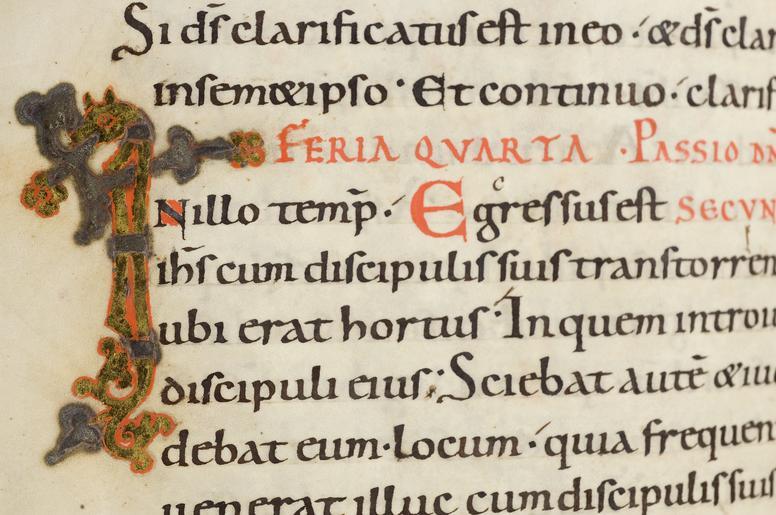 Si dſ̄ clarificatuſ eſt in eo · & dſ̄ clar
in ſem&ipſo · Et continuo · clarif
FERIA QVARTA · PASSIO DN̄
IN illo temp̄ · Egreſſuſ eſt SECVN
ihſ̄ cum diſcipuliſ ſuiſ tranſ torren
ubi erat hortuſ · In quem introi
diſcipuli eiuſ ; Sciebat autē & iu
debat eum · locum · quia frequen
uenerat illuc cum diſcipuliſ ſuiſ